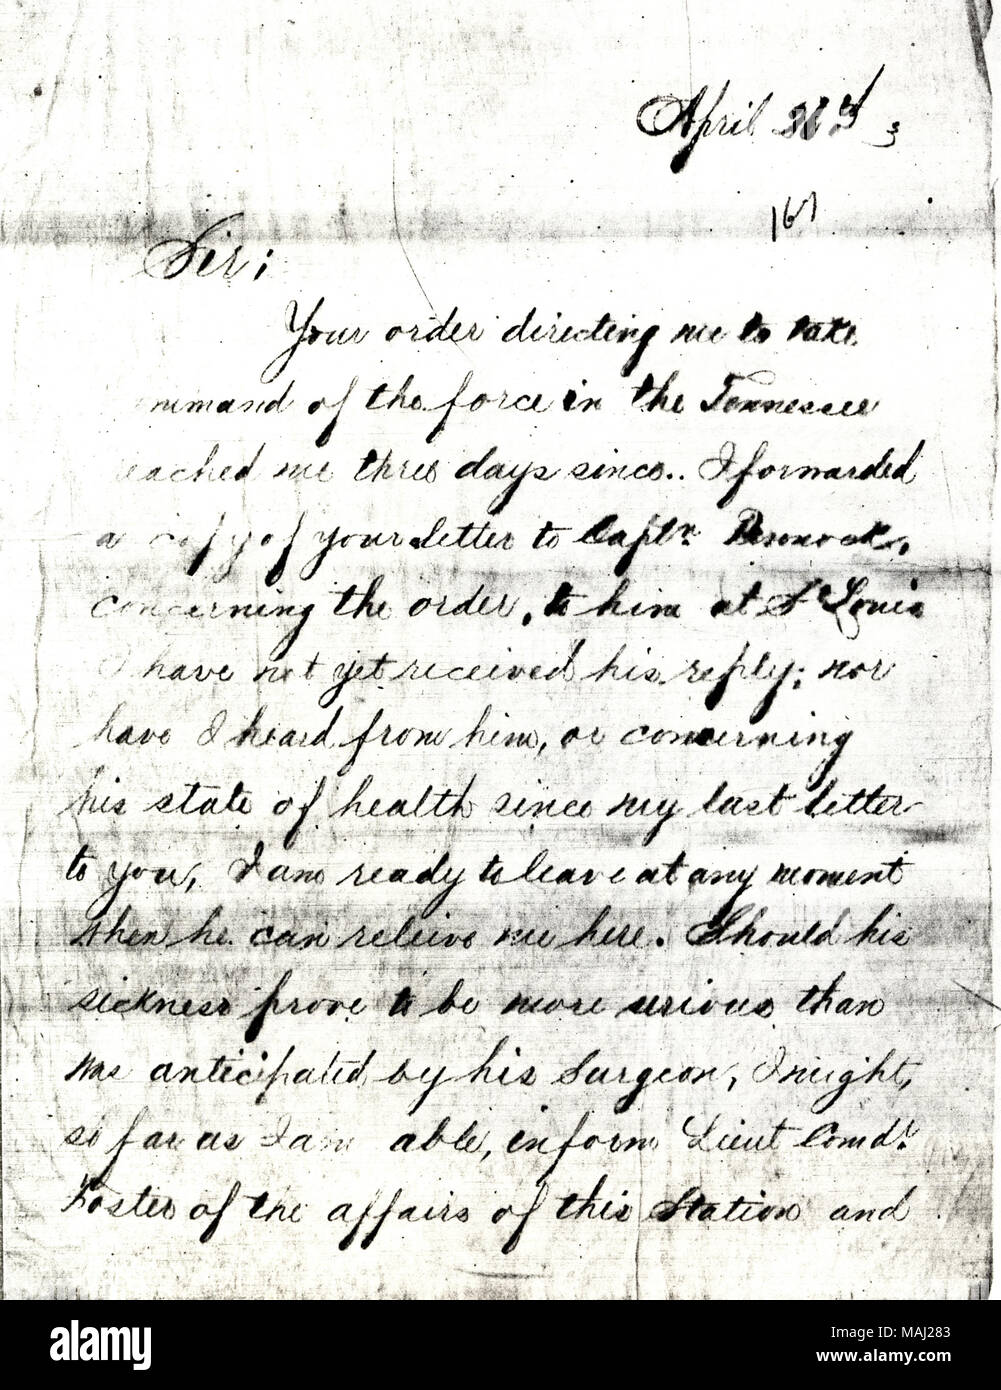 April 3
167
Sir;
Your order directing me to take
mmand of the force in the Tennessee
eached me three days since.. I forwarded
a copy of your letter to Captn. Pennock,
concerning the order, to him at St Louis
I have not yet received his reply; nor
have I heard from him, or concerning
his state of health since my last letter
to you, I am ready to leave at any moment
when he can releive me here. Should his
sickness prove to be more serious than
was anticipated by his Surgeon, I might,
so far as I am able, inform Lieut Comdr.
Foster of the affairs of this Station and
alamy
Image ID: MAJ283
www.alamy.com